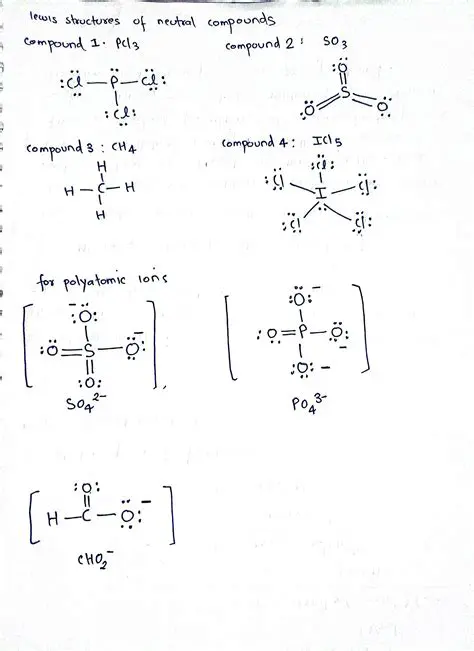 lewis structures of neutral compounds
compound 1. PCl3
compound 2 : SO3
:Cl — P — Cl:
:Cl:
:O:
S
O O
compound 3 : CH4
compound 4 : ICl5
H
H — C — H
H
:Cl:
:Cl I Cl:
:Cl Cl:
for polyatomic ions
:O: −
:O = S — O: −
:O:
SO4 2−
:O: −
:O = P — O: −
:O: −
PO4 3−
:O:
H — C — O: −
CHO2 −